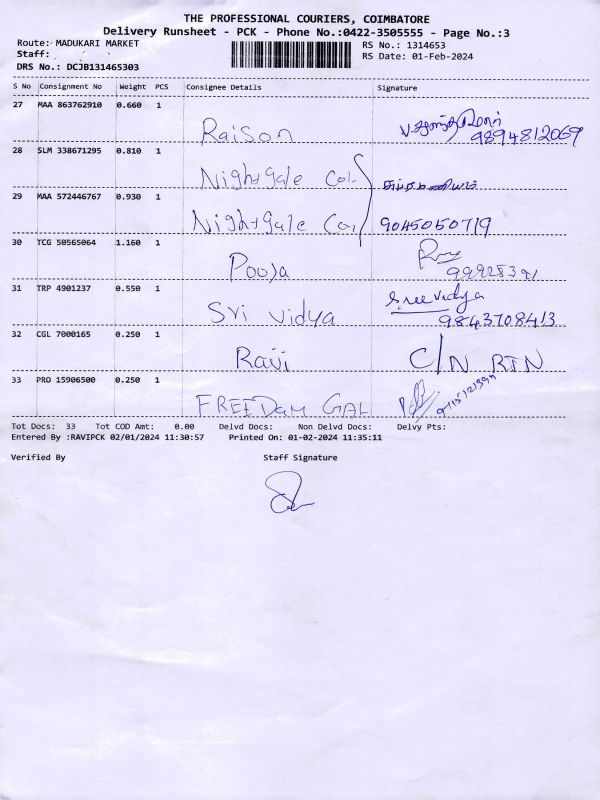 THE PROFESSIONAL COURIERS, COIMBATORE
Delivery Runsheet - PCK - Phone No.:0422-3505555 - Page No.:3
Route: MADUKARI MARKET
RS No.: 1314653
Staff:
RS Date: 01-Feb-2024
DRS No.: DCJB131465303
S No Consignment No Weight PCS Consignee Details Signature
27 MAA 863762910 0.660 1
Raison 9894812069
28 SLM 338671295 0.810 1
Nightgale Col
29 MAA 572446767 0.930 1
Nightgale Col 9045050719
30 TCG 50565064 1.160 1
Pooja
31 TRP 4901237 0.550 1 Sreevidya
Sri vidya 9843708413
32 CGL 7000165 0.250 1
Ravi C/N RTN
33 PRO 15906500 0.250 1
FREEDam GAL
Tot Docs: 33 Tot COD Amt: 0.00 Delvd Docs: Non Delvd Docs: Delvy Pts:
Entered By :RAVIPCK 02/01/2024 11:30:57 Printed On: 01-02-2024 11:35:11
Verified By Staff Signature